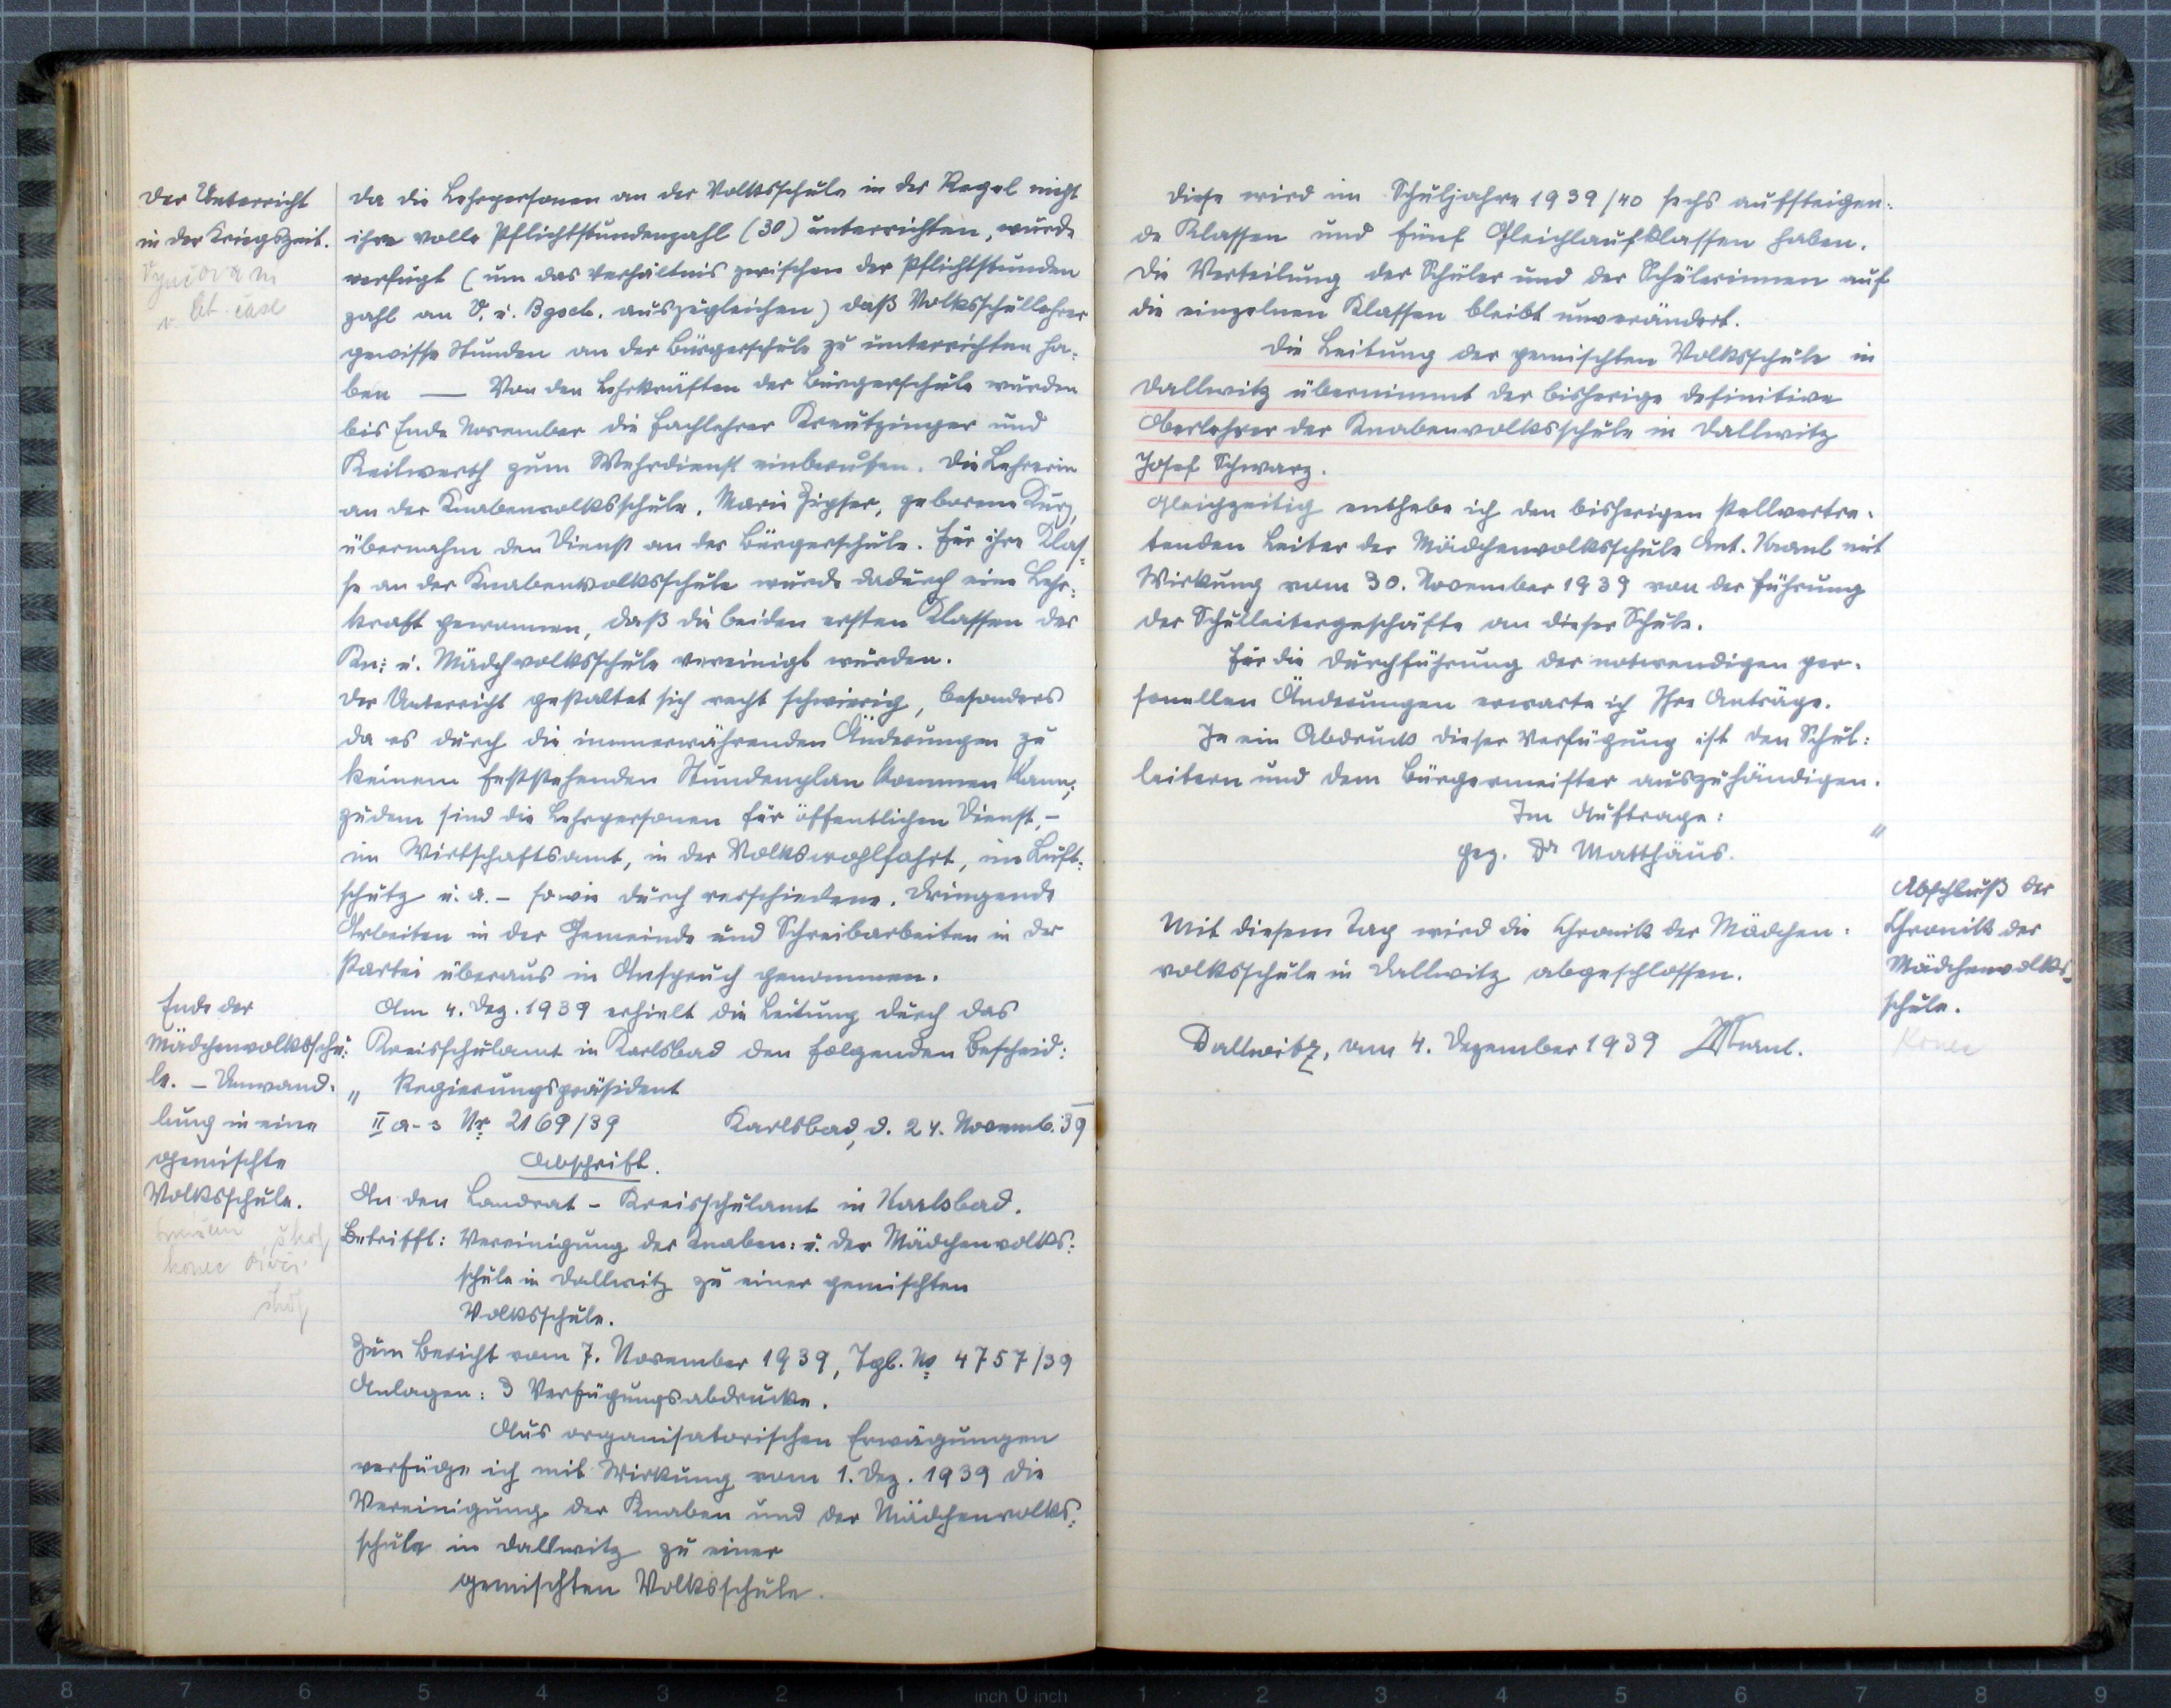 Der Unterricht
in der Kriegszeit.
v
Da die Lehrpersonen an der Volksschule in der Regel nicht
ihre volle Pflichtstundenzahl (30) unterrichten, wurde
verfügt (um das Verhältnis zwischen der Pflichtstunden
zahl an V. u. Bgsch. auszugleichen) daß Volksschullehrer
gewisse Stunden an der Bürgerschule zu unterrichten ha-
ben — Von den Lehrkräften der Bürgerschule wurden
bis Ende November die Fachlehrer Kreutzinger und
Keilwerth zum Wehrdienst einberufen. Die Lehrerin
an der Knabenvolksschule, Marie Zipser, geborene Kurz,
übernahm den Dienst an der Bürgerschule. Für ihre Klas-
se an der Knabenvolksschule wurde dadurch eine Lehr-
kraft gewonnen, daß die beiden ersten Klassen der
Kn: u. Mädchvolksschule vereinigt wurden.
Der Unterricht gestaltet sich recht schwierig, besonders
da es durch die immerwährenden Änderungen zu
keinem feststehenden Stundenplan kommen kann;
zudem sind die Lehrpersonen für öffentlichen Dienst, -
im Wirtschaftsamt, in der Volkswohlfahrt, im Luft-
schutz u. a. - sowie durch verschiedene, dringende
Arbeiten in der Gemeinde und Schreibarbeiten in der
Partei überaus in Anspruch genommen.
Ende der
Mädchenvolksschu-
le. - Umwand-
lung in eine
gemischte
Volksschule.
konec
Am 4. Dez. 1939 erhielt die Leitung durch das
Kreisschulamt in Karlsbad den folgenden Bescheid:
" Regierungspräsident
II a-3 Nr 2169/39 Karlsbad, d. 24. Novemb. 39
Abschrift.
An den Landrat - Kreisschulamt in Karlsbad.
Betrifft: Vereinigung der Knaben: u. der Mädchenvolks:
schule in Dallwitz zu einer gemischten
Volksschule.
Zum Bericht vom 7. November 1939, Tgb. No 4757/39
Anlagen: 3 Verfügungsabdrucke.
Aus organisatorischen Erwägungen
verfüge ich mit Wirkung vom 1. Dez. 1939 die
Vereinigung der Knaben und der Mädchenvolks:
schule in Dallwitz zu einer
gemischten Volksschule.
Diese wird im Schuljahre 1939/40 sechs aufsteigen-
de Klassen und fünf Gleichlaufklassen haben.
Die Verteilung der Schüler und der Schülerinnen auf
die einzelnen Klassen bleibt unverändert.
Die Leitung der gemischten Volksschule in
Dallwitz übernimmt der bisherige definitive
Oberlehrer der Knabenvolksschule in Dallwitz
Josef Schwarz.
Gleichzeitig enthebe ich den bisherigen stellvertre-
tenden Leiter der Mädchenvolksschule Ant. mit
Wirkung vom 30. November 1939 von der Führung
der Schulleitergeschäfte an dieser Schule.
Für die Durchführung der notwendigen per-
sonellen Änderungen erwarte ich Ihre Anträge.
Je ein Abdruck dieser Verfügung ist den Schul:
leitern und dem Bürgermeister auszuhändigen.
Im Auftrage:
gez. Dr Matthäus. "
Mit diesem Tag wird die Chronik der Mädchen-
volksschule in Dallwitz abgeschlossen.
Dallwitz, am 4. Dezember 1939
Abschluß der
Chronik der
Mädchenvolks-
schule.
Konec
8 7 6 5 4 3 2 1 inch 0 inch 1 2 3 4 5 6 7 8 9